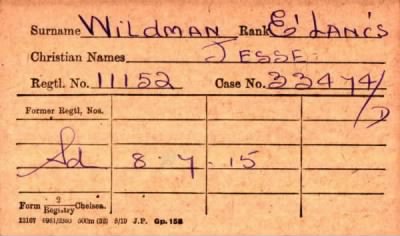 Surname WILDMAN Rank E' LANCS
Christian Names JESSE
Regtl. No. 11152 Case No. 33474/D
Former Regtl. Nos.
Sd 8.7.15
Form 2/Registry Chelsea.
23167 6961/2380 500m (32) 5/19 J.P. Gp. 158